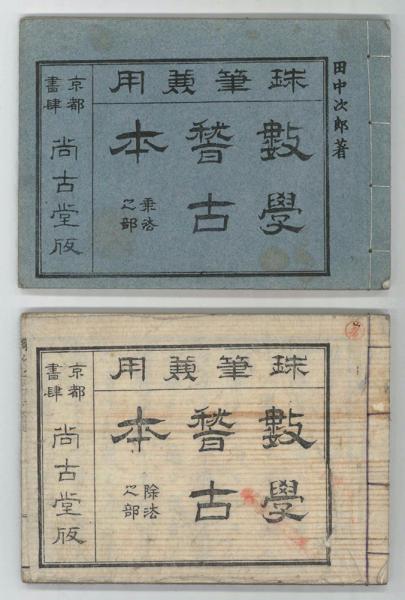 田中次郎著
珠筆兼用
數學
稽古
本
乗法
之部
京都
書肆
尚古堂版
珠筆兼用
數學
稽古
本
除法
之部
京都
書肆
尚古堂版